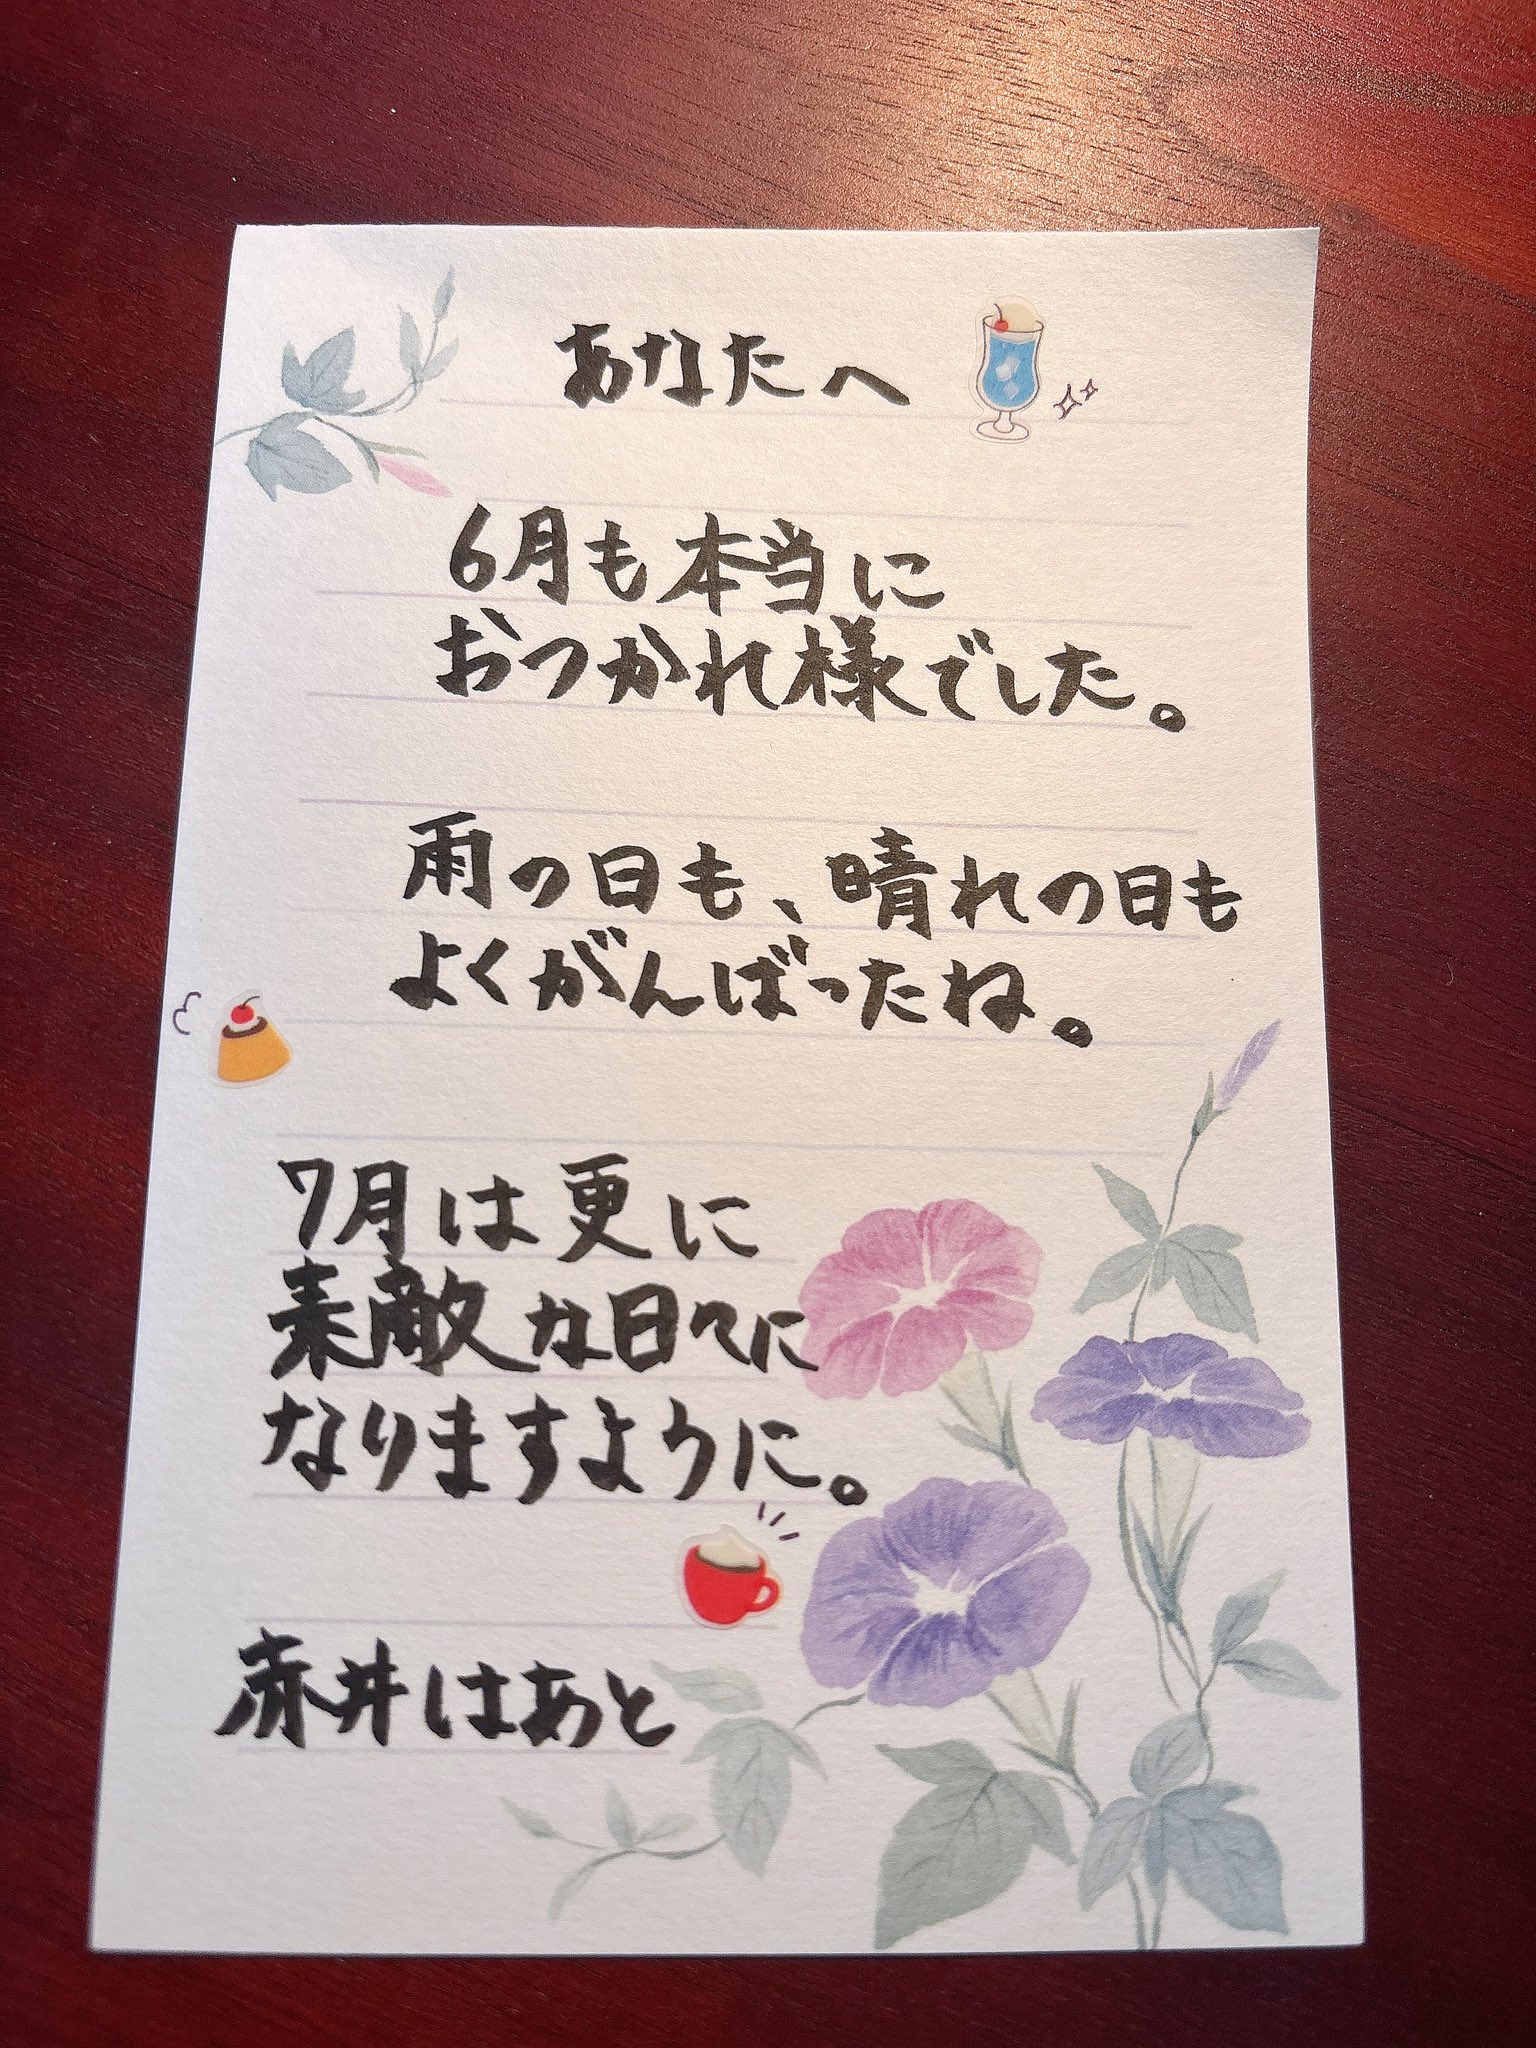 あなたへ
6月も本当に
おつかれ様でした。
雨の日も、晴れの日も
よくがんばったね。
7月は更に
素敵な日々に
なりますように。
赤井はあと